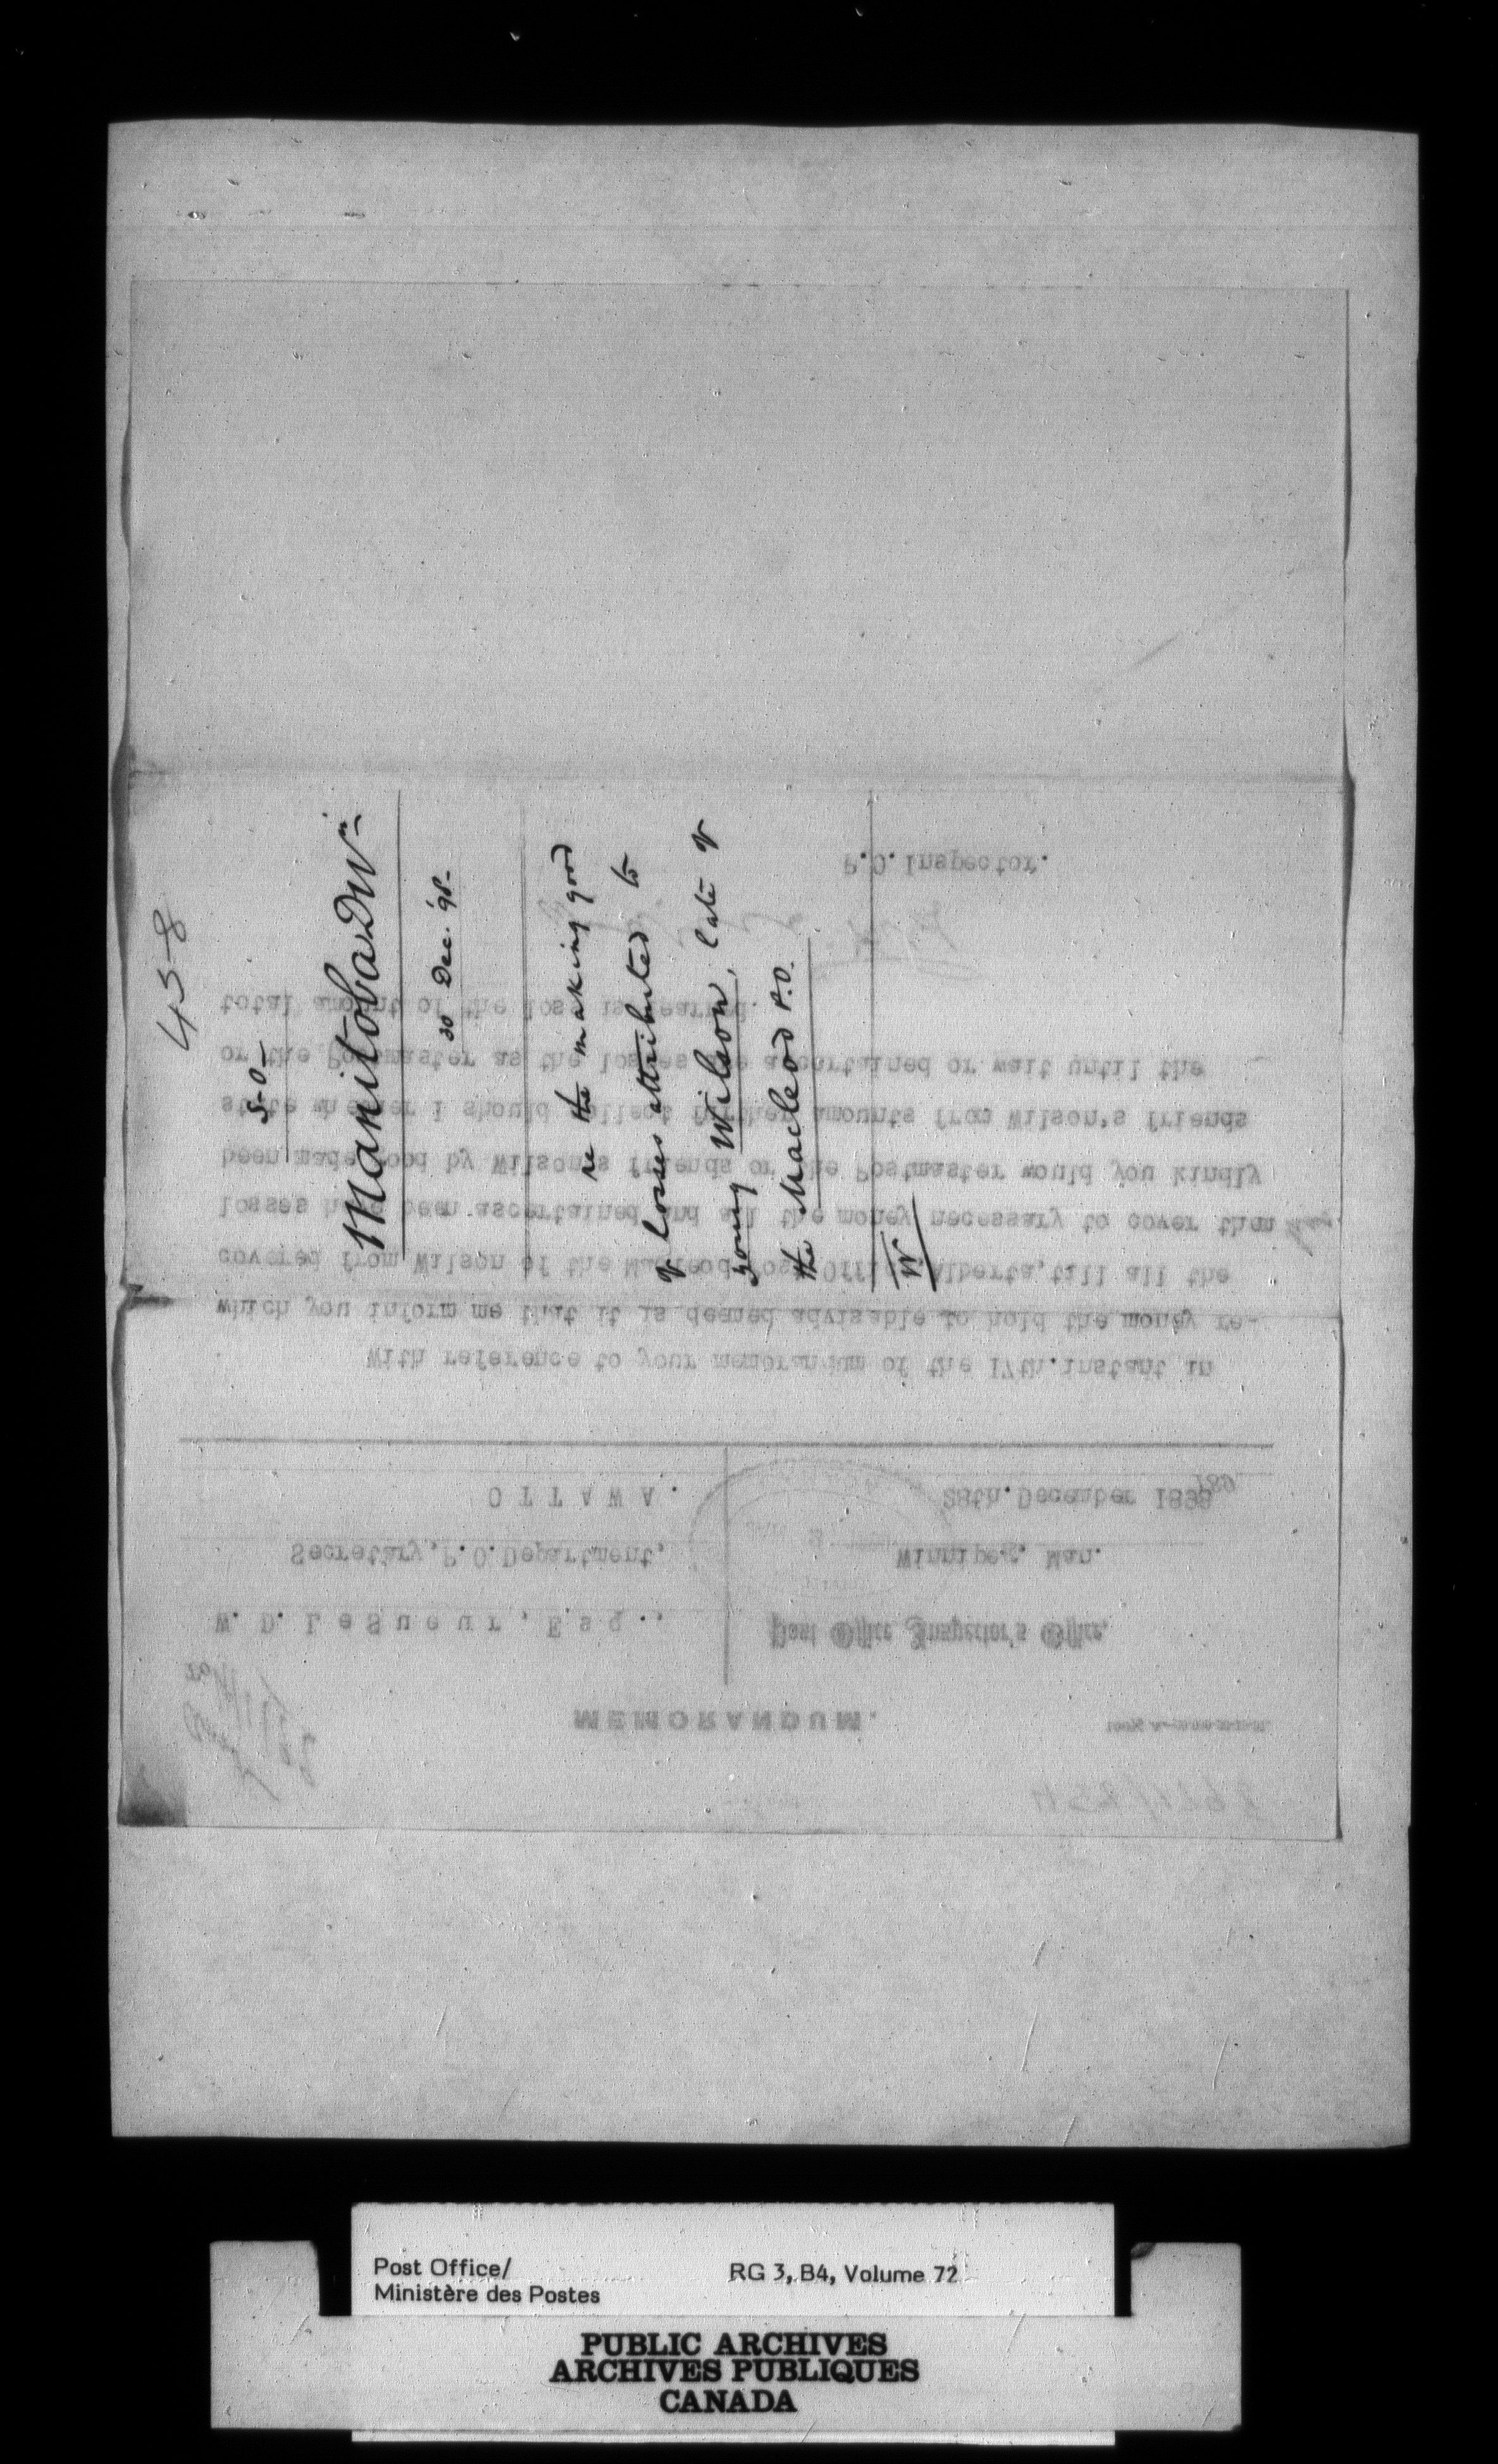 458
S-O-
Manitoba Divn
30 Dec. '98-
re the making good
of losses attributed to
young Wilson, late of
the Macleod P.O.
W
MEMORANDUM.
Post Office Inspector's Office,
Winnipeg, Man.
28th. December 1898
W. D. LeSueur, Esq.,
Secretary, P.O. Department,
OTTAWA.
With reference to your memorandum of the 17th. instant in
which you inform me that it is deemed advisable to hold the money re-
covered from Wilson of the Macleod Post Office Alberta, till all the
losses have been ascertained and all the money necessary to cover them
been made good by Wilson's friends or the Postmaster would you kindly
state whether I should collect further amounts from Wilson's friends
or the Postmaster as the losses are ascertained or wait until the
total amount of the loss is learned.
P.O. Inspector.
Post Office/
Ministère des Postes
RG 3, B4, Volume 72
PUBLIC ARCHIVES
ARCHIVES PUBLIQUES
CANADA